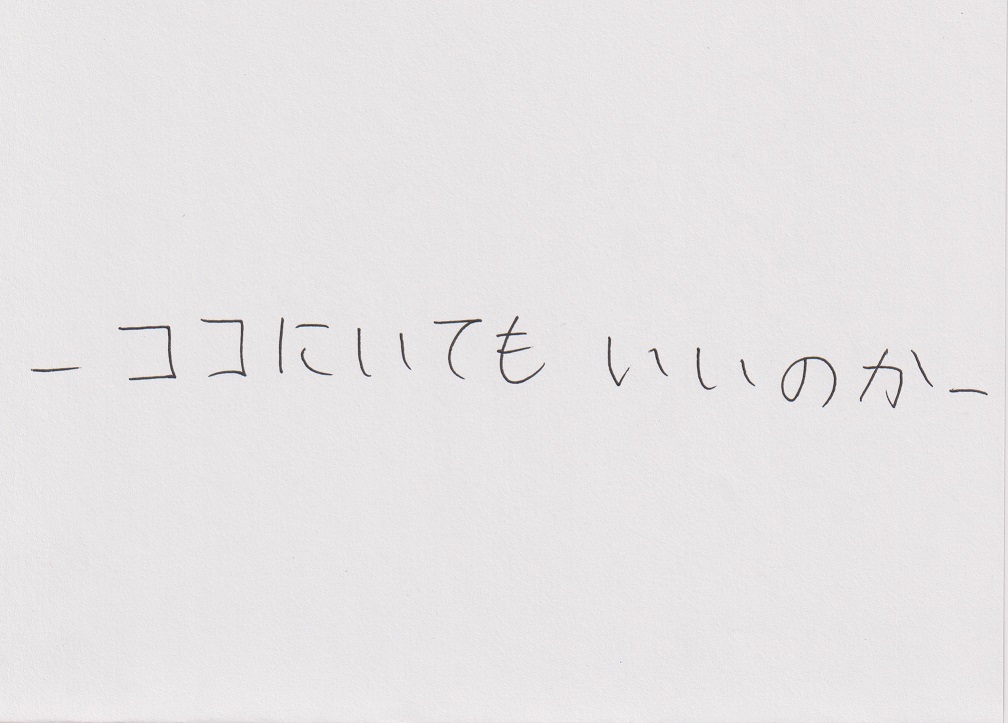 －ココにいても いいのか－